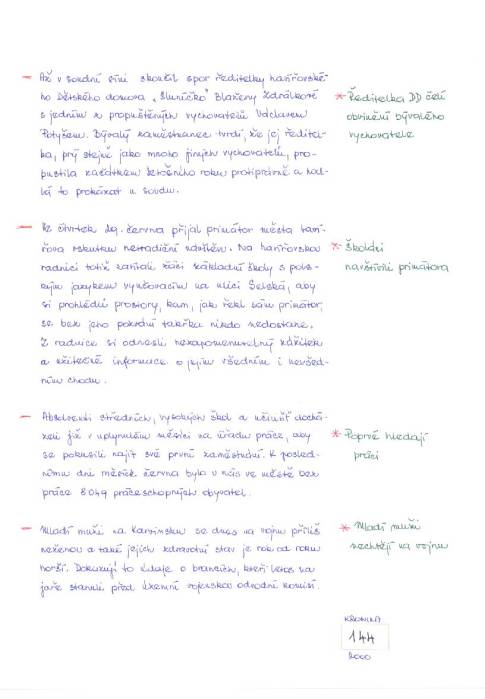 – Až v soudní síni skončil spor ředitelky havířovské-
ho Dětského domova „Sluníčko" Blaženy Zdrálkové
s jedním z propuštěných vychovatelů Václavem
Potyšem. Bývalý zaměstnanec tvrdí, že jej ředitel-
ka, prý stejně jako mnoho jiných vychovatelů, pro-
pustila začátkem letošního roku protiprávně a hod-
lá to prokázat u soudu.
* Ředitelka DD čelí
obvinění bývalého
vychovatele
– Ve čtvrtek 29. června přijal primátor města Haví-
řova vskutku netradiční návštěvu. Na havířovskou
radnici totiž zavítali žáci základní školy s pols-
kým jazykem vyučovacím na ulici Selská, aby
si prohlédli prostory, kam, jak řekl sám primátor,
se bez jeho pozvání takřka nikdo nedostane.
Z radnice si odnesli nezapomenutelný zážitek
a užitečné informace o jejím všedním i nevšed-
ním chodu.
* Školáci
navštívili primátora
– Absolventi středních, vysokých škol a učilišť dochá-
zeli již v uplynulém měsíci na úřadu práce, aby
se pokusili najít své první zaměstnání. K posled-
nímu dni měsíce června bylo v nás ve městě bez
práce 8 049 práceschopných obyvatel.
* Poprvé hledají
práci
– Mladí muži na Karvinsku se dnes na vojnu příliš
neženou a také jejich zdravotní stav je rok od roku
horší. Dokazují to údaje o brancích, kteří letos na
jaře stanuli před územní vojenskou odvodní komisí.
* Mladí muži
nechtějí na vojnu
KRONIKA
144
2000